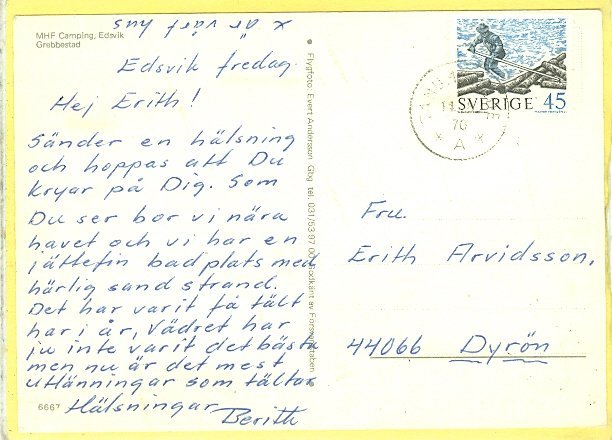 x är vårt hus
MHF Camping, Edsvik
Grebbestad
Edsvik fredag.
Hej Erith!
Sänder en hälsning
och hoppas att Du
kryar på Dig. Som
Du ser bor vi nära
havet och vi har en
jättefin badplats med
härlig sand strand.
Det har varit få tält
har i år, Vädret har
ju inte varit det bästa
men nu är det mest
utlänningar som tältar
Hälsningar
Berith
6667
Flygfoto: Evert Andersson Gbg tel. 031/53 97 00 Godkänt av Försvarsstaben
SVERIGE 45
70
* A *
Fru.
Erith Arvidsson,
44066 Dyrön